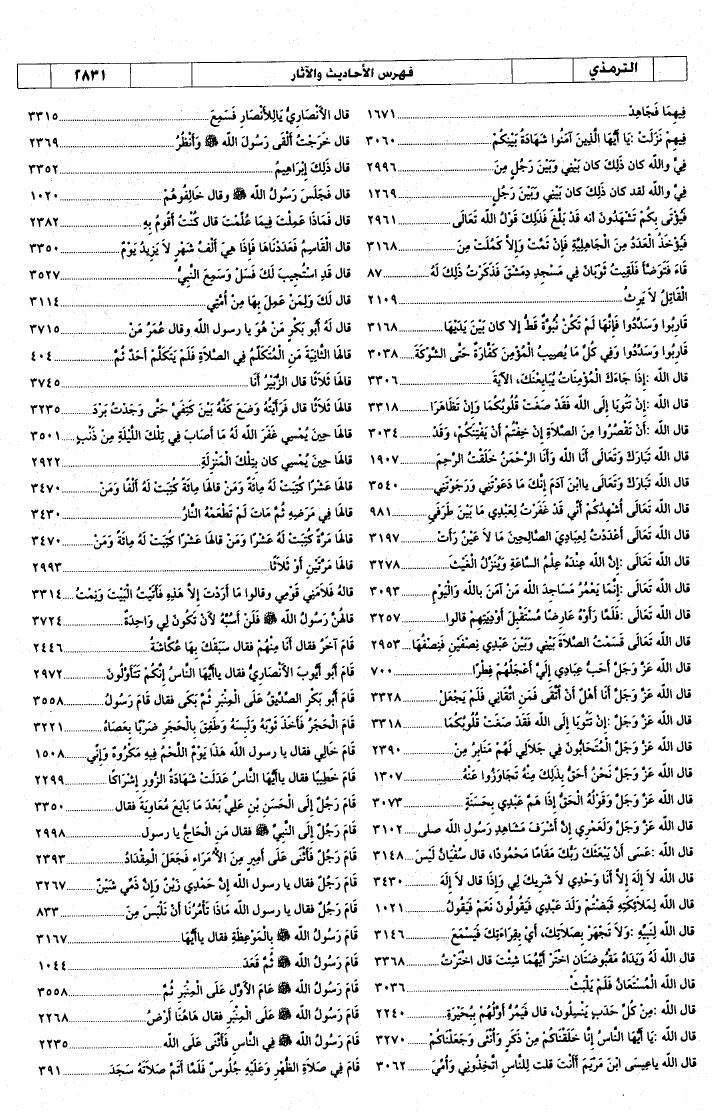 الترمذي
فهرس الأحاديث والآثار
٢٨٣١
فِيهِمَا فَجَاهِدْ ١٦٧١
فِيهِمْ نَزَلَتْ :يَا أَيُّهَا الَّذِينَ آمَنُوا شَهَادَةُ بَيْنِكُمْ ٣٠٦٠
فِيَّ وَاللَّه كان ذَلِكَ كان بَيْنِي وَبَيْنَ رَجُلٍ مِنَ ٢٩٩٦
فِيَّ وَاللَّه لقد كان ذَلِكَ كان بَيْنِي وَبَيْنَ رَجُلٍ ١٢٦٩
فَيُؤْتَى بِكُمْ تَشْهَدُونَ أنه قَدْ بَلَّغَ فَذَلِكَ قَوْلُ اللَّه تَعَالَى ٢٩٦١
فَيُؤْخَذُ الْعَدَدُ مِنَ الْجَاهِلِيَّةِ فَإِنْ تَمَّتْ وَإِلاَّ كَمُلَتْ مِنَ ٣١٦٨
قَاءَ فَتَوَضَّأَ فَلَقِيتُ ثَوْبَانَ فِي مَسْجِدِ دِمَشْقَ فَذَكَرْتُ ذَلِكَ لَهُ ٨٧
الْقَاتِلُ لاَ يَرِثُ ٢١٠٩
قَارِبُوا وَسَدِّدُوا فَإِنَّهَا لَمْ تَكُنْ نُبُوَّةٌ قَطُّ إلا كان بَيْنَ يَدَيْهَا ٣١٦٨
قَارِبُوا وَسَدِّدُوا وَفِي كُلِّ مَا يُصِيبُ الْمُؤْمِنَ كَفَّارَةٌ حَتَّى الشَّوْكَةَ ٣٠٣٨
قال اللَّه :إِذَا جَاءَكَ الْمُؤْمِنَاتُ يُبَايِعْنَكَ، الآيَةَ ٣٣٠٦
قال اللَّه :إِنْ تَتُوبَا إِلَى اللَّه فَقَدْ صَغَتْ قُلُوبُكُمَا وَإِنْ تَظَاهَرَا ٣٣١٨
قال اللَّه :أَنْ تَقْصُرُوا مِنَ الصَّلاَةِ إِنْ خِفْتُمْ أَنْ يَفْتِنَكُمْ، وَقَدْ ٣٠٣٤
قال اللَّه تَبَارَكَ وَتَعَالَى أَنَا اللَّه وَأَنَا الرَّحْمَنُ خَلَقْتُ الرَّحِمَ ١٩٠٧
قال اللَّه تَبَارَكَ وَتَعَالَى ياابْنَ آدَمَ إِنَّكَ مَا دَعَوْتَنِي وَرَجَوْتَنِي ٣٥٤٠
قال اللَّه تَعَالَى أُشْهِدُكُمْ أَنِّي قَدْ غَفَرْتُ لِعَبْدِي مَا بَيْنَ طَرَفَيِ ٩٨١
قال اللَّه تَعَالَى أَعْدَدْتُ لِعِبَادِيَ الصَّالِحِينَ مَا لاَ عَيْنٌ رَأَتْ ٣١٩٧
قال اللَّه تَعَالَى :إِنَّ اللَّه عِنْدَهُ عِلْمُ السَّاعَةِ وَيُنَزِّلُ الْغَيْثَ ٣٢٧٨
قال اللَّه تَعَالَى :إِنَّمَا يَعْمُرُ مَسَاجِدَ اللَّه مَنْ آمَنَ بِاللَّه وَالْيَوْمِ ٣٠٩٣
قال اللَّه تَعَالَى :فَلَمَّا رَأَوْهُ عَارِضًا مُسْتَقْبِلَ أَوْدِيَتِهِمْ قالوا ٣٢٥٧
قال اللَّه تَعَالَى قَسَمْتُ الصَّلاَةَ بَيْنِي وَبَيْنَ عَبْدِي نِصْفَيْنِ فَنِصْفُهَا ٢٩٥٣
قال اللَّه عَزَّ وَجَلَّ أَحَبُّ عِبَادِي إِلَيَّ أَعْجَلُهُمْ فِطْرًا ٧٠٠
قال اللَّه عَزَّ وَجَلَّ أَنَا أَهْلٌ أَنْ أُتَّقَى فَمَنِ اتَّقَانِي فَلَمْ يَجْعَلْ ٣٣٢٨
قال اللَّه عَزَّ وَجَلَّ :إِنْ تَتُوبَا إِلَى اللَّه فَقَدْ صَغَتْ قُلُوبُكُمَا ٣٣١٨
قال اللَّه عَزَّ وَجَلَّ الْمُتَحَابُّونَ فِي جَلاَلِي لَهُمْ مَنَابِرُ مِنْ ٢٣٩٠
قال اللَّه عَزَّ وَجَلَّ نَحْنُ أَحَقُّ بِذَلِكَ مِنْهُ تَجَاوَزُوا عَنْهُ ١٣٠٧
قال اللَّه عَزَّ وَجَلَّ وَقَوْلُهُ الْحَقُّ إِذَا هَمَّ عَبْدِي بِحَسَنَةٍ ٣٠٧٣
قال اللَّه عَزَّ وَجَلَّ وَلَعَمْرِي إِنَّ أَشْرَفَ مَشَاهِدِ رَسُولِ اللَّه صلى ٣١٠٢
قال اللَّه :عَسَى أَنْ يَبْعَثَكَ رَبُّكَ مَقَامًا مَحْمُودًا، قال سُفْيَانُ لَيْسَ ٣١٤٨
قال اللَّه لاَ إِلَهَ إِلاَّ أَنَا وَحْدِي لاَ شَرِيكَ لِي وَإِذَا قال لاَ إِلَهَ ٣٤٣٠
قال اللَّه لِمَلاَئِكَتِهِ قَبَضْتُمْ وَلَدَ عَبْدِي فَيَقُولُونَ نَعَمْ فَيَقُولُ ١٠٢١
قال اللَّه لِنَبِيِّهِ :وَلاَ تَجْهَرْ بِصَلاَتِكَ، أَيْ بِقِرَاءَتِكَ فَيَسْمَعَ ٣١٤٦
قال اللَّه لَهُ وَيَدَاهُ مَقْبُوضَتَانِ اخْتَرْ أَيَّهُمَا شِئْتَ قال اخْتَرْتُ ٣٣٦٨
قال اللَّه الْمُسْتَعَانُ فَلَمْ يَلْبَثْ ٣٠٣٦
قال اللَّه :مِنْ كُلِّ حَدَبٍ يَنْسِلُونَ، قال فَيَمُرُّ أَوَّلُهُمْ بِبُحَيْرَةِ ٢٢٤٠
قال اللَّه :يَا أَيُّهَا النَّاسُ إِنَّا خَلَقْنَاكُمْ مِنْ ذَكَرٍ وَأُنْثَى وَجَعَلْنَاكُمْ ٣٢٧٠
قال اللَّه ياعِيسَى ابْنَ مَرْيَمَ أَأَنْتَ قلت لِلنَّاسِ اتَّخِذُونِي وَأُمِّيَ ٣٠٦٢
قال الأَنْصَارِيُّ يَالَلأَنْصَارِ فَسَمِعَ ٣٣١٥
قال خَرَجْتُ أَلْقَى رَسُولَ اللَّه ﷺ وَأَنْظُرُ ٢٣٦٩
قال ذَلِكَ إِبْرَاهِيمُ ٣٣٥٢
قال فَجَلَسَ رَسُولُ اللَّه ﷺ وقال خَالِفُوهُمْ ١٠٢٠
قال فَمَاذَا عَمِلْتَ فِيمَا عُلِّمْتَ قال كُنْتُ أَقُومُ بِهِ ٢٣٨٢
قال الْقَاسِمُ فَعَدَدْنَاهَا فَإِذَا هِيَ أَلْفُ شَهْرٍ لاَ يَزِيدُ يَوْمٌ ٣٣٥٠
قال قَدِ اسْتُجِيبَ لَكَ فَسَلْ وَسَمِعَ النَّبِيُّ ٣٥٢٧
قال لَكَ وَلِمَنْ عَمِلَ بِهَا مِنْ أُمَّتِي ٣١١٤
قال لَهُ أَبُو بَكْرٍ مَنْ هُوَ يا رسول اللَّه وقال عُمَرُ مَنْ ٣٧١٥
قالهَا الثَّانِيَةَ مَنِ الْمُتَكَلِّمُ فِي الصَّلاَةِ فَلَمْ يَتَكَلَّمْ أَحَدٌ ثُمَّ ٤٠٤
قالهَا ثَلاَثًا قال الزُّبَيْرُ أَنَا ٣٧٤٥
قالهَا ثَلاَثًا قال فَرَأَيْتُهُ وَضَعَ كَفَّهُ بَيْنَ كَتِفَيَّ حَتَّى وَجَدْتُ بَرْدَ ٣٢٣٥
قالهَا حِينَ يُمْسِي غَفَرَ اللَّه لَهُ مَا أَصَابَ فِي تِلْكَ اللَّيْلَةِ مِنْ ذَنْبٍ ٣٥٠١
قالهَا حِينَ يُمْسِي كان بِتِلْكَ الْمَنْزِلَةِ ٢٩٢٢
قالهَا عَشْرًا كُتِبَتْ لَهُ مِائَةً وَمَنْ قالهَا مِائَةً كُتِبَتْ لَهُ أَلْفًا وَمَنْ ٣٤٧٠
قالهَا فِي مَرَضِهِ ثُمَّ مَاتَ لَمْ تَطْعَمْهُ النَّارُ ٣٤٣٠
قالهَا مَرَّةً كُتِبَتْ لَهُ عَشْرًا وَمَنْ قالهَا عَشْرًا كُتِبَتْ لَهُ مِائَةً وَمَنْ ٣٤٧٠
قالهَا مَرَّتَيْنِ أَوْ ثَلاَثًا ٢٩٩٣
قالهُ فَلاَمَنِي قَوْمِي وقالوا مَا أَرَدْتَ إِلاَّ هَذِهِ فَأَتَيْتُ الْبَيْتَ وَنِمْتُ ٣٣١٤
قالهُنَّ رَسُولُ اللَّه ﷺ فَلَنْ أَسُبَّهُ لأَنْ تَكُونَ لِي وَاحِدَةٌ ٣٧٢٤
قَامَ آخَرُ فقال أَنَا مِنْهُمْ فقال سَبَقَكَ بِهَا عُكَّاشَةُ ٢٤٤٦
قَامَ أَبُو أَيُّوبَ الأَنْصَارِيُّ فقال ياأَيُّهَا النَّاسُ إِنَّكُمْ تَتَأَوَّلُونَ ٢٩٧٢
قَامَ أَبُو بَكْرٍ الصِّدِّيقُ عَلَى الْمِنْبَرِ ثُمَّ بَكَى فقال قَامَ رَسُولُ ٣٥٥٨
قَامَ الْحَجَرُ فَأَخَذَ ثَوْبَهُ وَلَبِسَهُ وَطَفِقَ بِالْحَجَرِ ضَرْبًا بِعَصَاهُ ٣٢٢١
قَامَ خَالِي فقال يا رسول اللَّه هَذَا يَوْمٌ اللَّحْمُ فِيهِ مَكْرُوهٌ وَإِنِّي ١٥٠٨
قَامَ خَطِيبًا فقال ياأَيُّهَا النَّاسُ عَدَلَتْ شَهَادَةُ الزُّورِ إِشْرَاكًا ٢٢٩٩
قَامَ رَجُلٌ إِلَى الْحَسَنِ بْنِ عَلِيٍّ بَعْدَ مَا بَايَعَ مُعَاوِيَةَ فقال ٣٣٥٠
قَامَ رَجُلٌ إِلَى النَّبِيِّ ﷺ فقال مَنِ الْحَاجُّ يا رسول ٢٩٩٨
قَامَ رَجُلٌ فَأَثْنَى عَلَى أَمِيرٍ مِنَ الأُمَرَاءِ فَجَعَلَ الْمِقْدَادُ ٢٣٩٣
قَامَ رَجُلٌ فقال يا رسول اللَّه إِنَّ حَمْدِي زَيْنٌ وَإِنَّ ذَمِّي شَيْنٌ ٣٢٦٧
قَامَ رَجُلٌ فقال يا رسول اللَّه مَاذَا تَأْمُرُنَا أَنْ نَلْبَسَ مِنَ ٨٣٣
قَامَ رَسُولُ اللَّه ﷺ بِالْمَوْعِظَةِ فقال ياأَيُّهَا ٣١٦٧
قَامَ رَسُولُ اللَّه ﷺ ثُمَّ قَعَدَ ١٠٤٤
قَامَ رَسُولُ اللَّه ﷺ عَامَ الأَوَّلِ عَلَى الْمِنْبَرِ ثُمَّ ٣٥٥٨
قَامَ رَسُولُ اللَّه ﷺ عَلَى الْمِنْبَرِ فقال هَاهُنَا أَرْضُ ٢٢٦٨
قَامَ رَسُولُ اللَّه ﷺ فِي النَّاسِ فَأَثْنَى عَلَى اللَّه ٢٢٣٥
قَامَ فِي صَلاَةِ الظُّهْرِ وَعَلَيْهِ جُلُوسٌ فَلَمَّا أَتَمَّ صَلاَتَهُ سَجَدَ ٣٩١